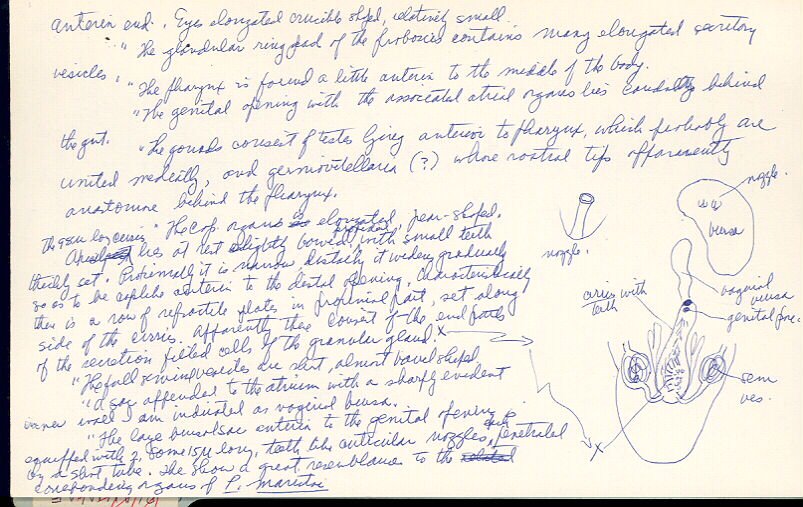 anterior end. Eyes elongated crucible shped, relatively small
"The glandular ring pad of the proboscis contains many elongated secretory
vesicles.
"The pharynx is found a little anterior to the middle of the body.
"The genital opening with the associated atrial organs lies caudally behind
the gut.
"The gonads consist of testes lying anterior to pharynx, which probably are
united medially, and germovitellaria (?) whose rostral tips apparently
anastomose behind the pharynx.
"The cop. organ is elongated pear-shaped.
the 95µ long cirrus
lies at rest slightly bowed, provided with small teeth
thickly set. Proximally it is narrow distally it widens gradually
so as to be cuplike anterior to the distal opening. Characteristically
there is a row of refractile plates in proximal part, set along
side of the cirrus. Apparently these consist of the end parts
of the secretion filled cells of the granular gland. X
"The full seminal vesicles are short, almost bowl shped
"A sac appended to the atrium with a sharply evident
inner wall I am indicated as vaginal bursa.
"The large bursal sac anterior to the genital opening is
equipped with 2, some 15µ long, teeth like cuticular nozzles, each penetrated
by a short tube. The show a great resemblance to the
corresponding organs of P. maristoi
nozzle.
nozzle.
bursa
vaginal
bursa
genital pore.
cirrus with
teeth
sem
ves.
X